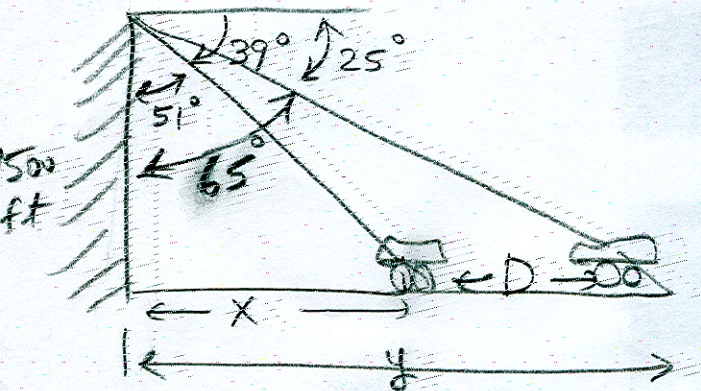 39°
25°
51°
65°
ft
D
x
y